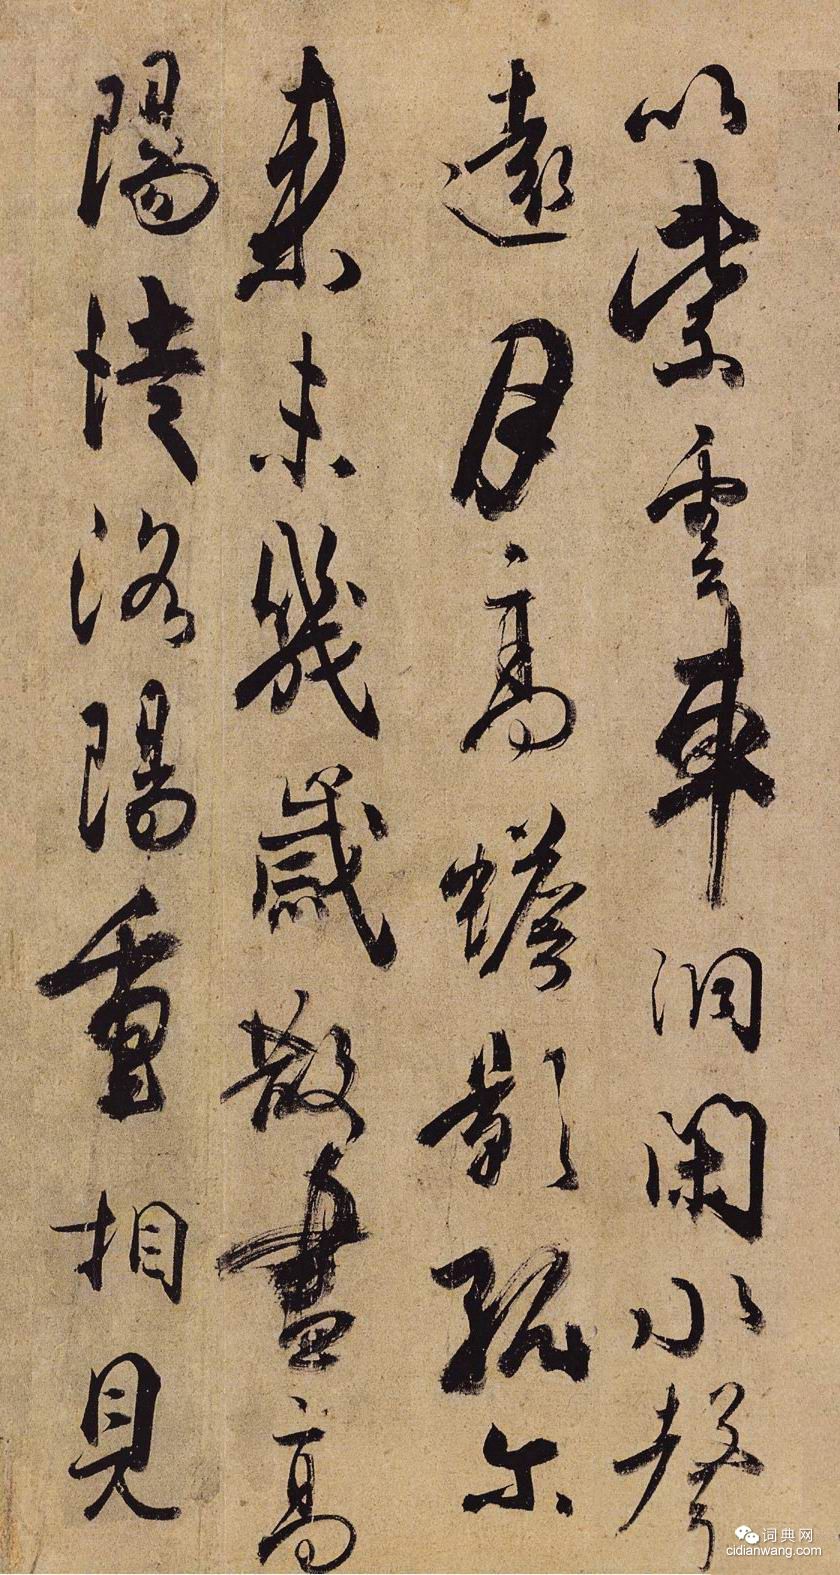 以紫雲車洞閑水聲
遠月高蟾影孤尔
來未幾歲散盡高
陽徒洛陽重相見
词典网
cidianwang.com